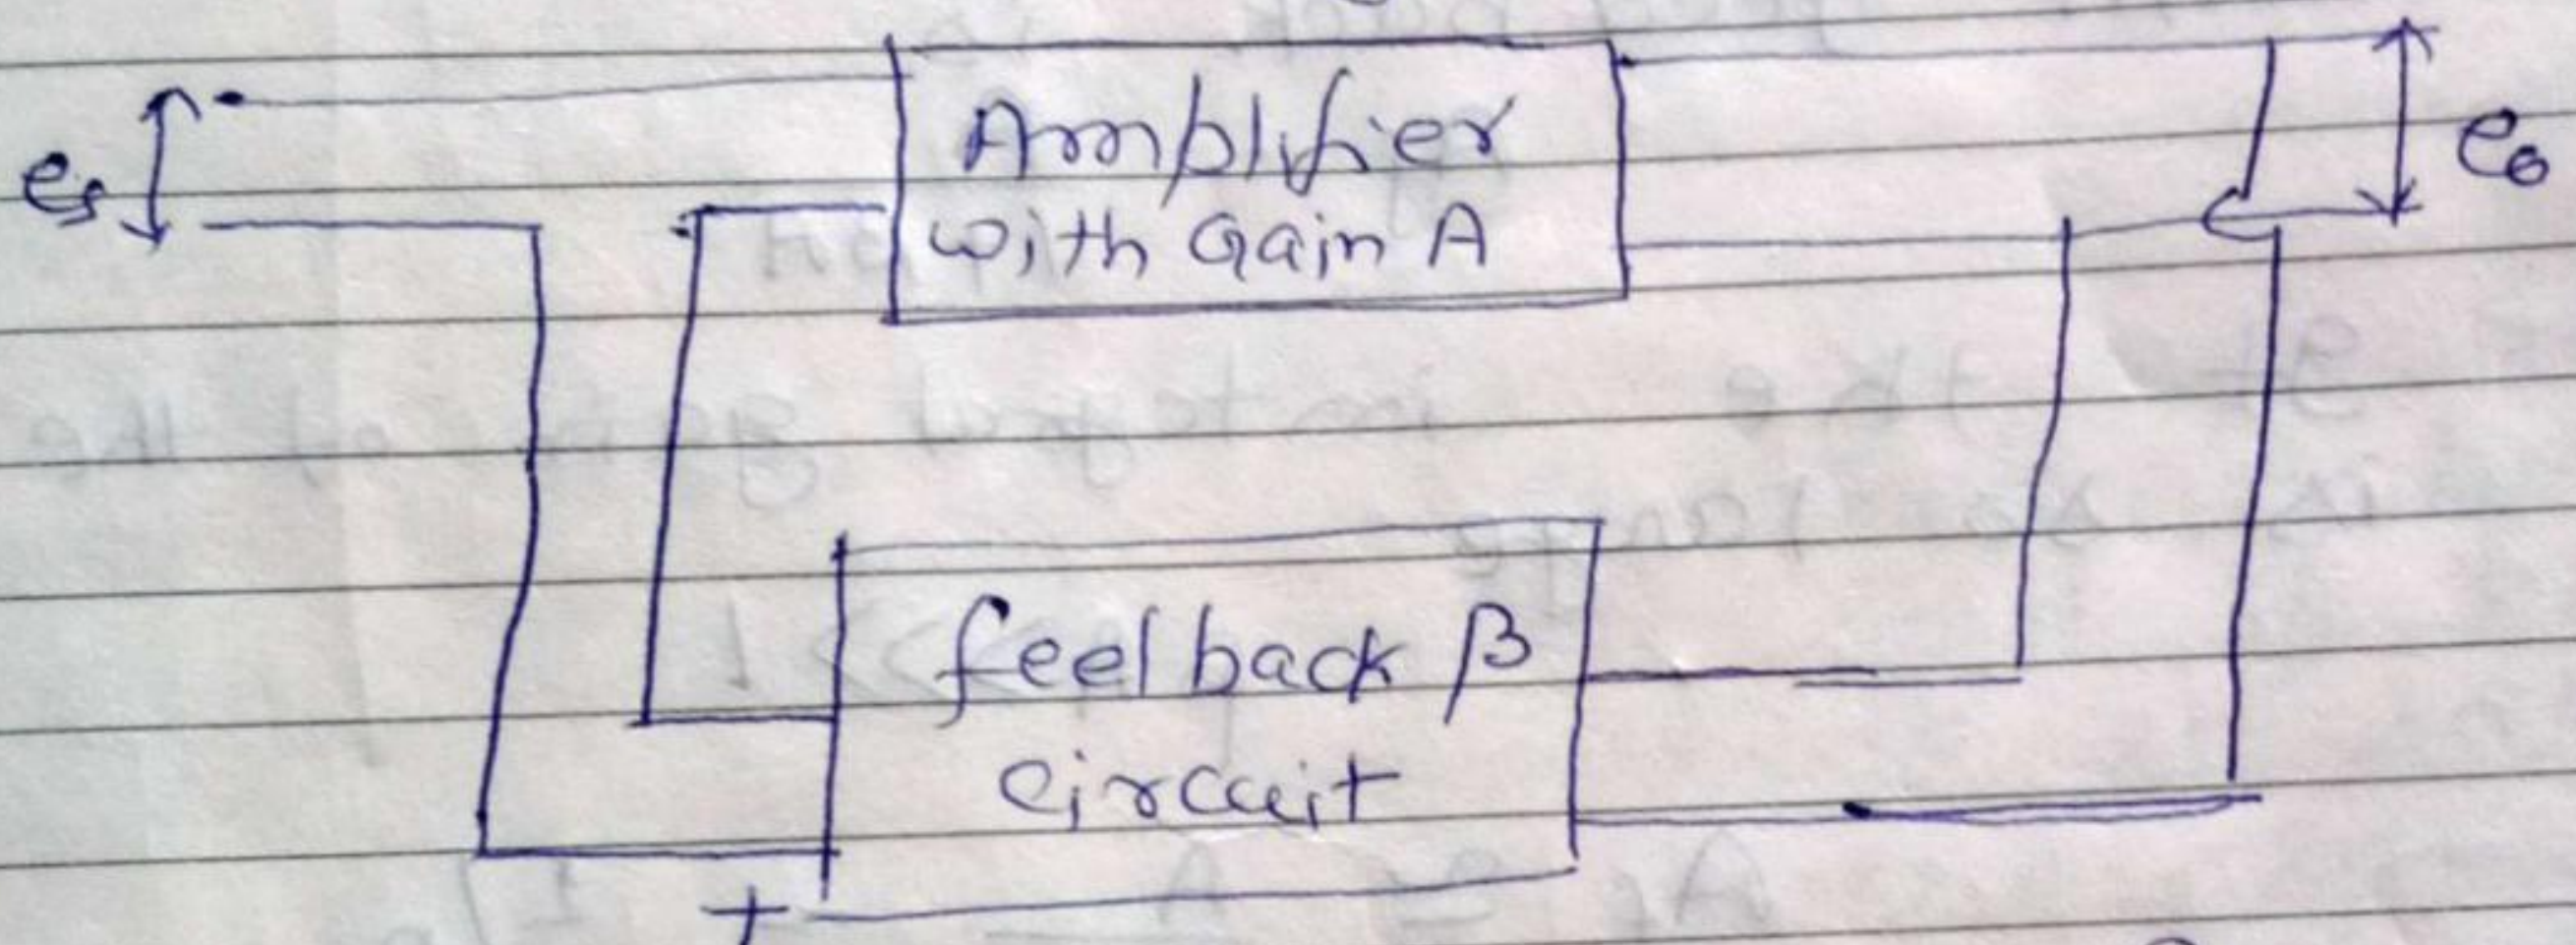 Amplifier
with Gain A
es
eo
feelback β
circuit
+